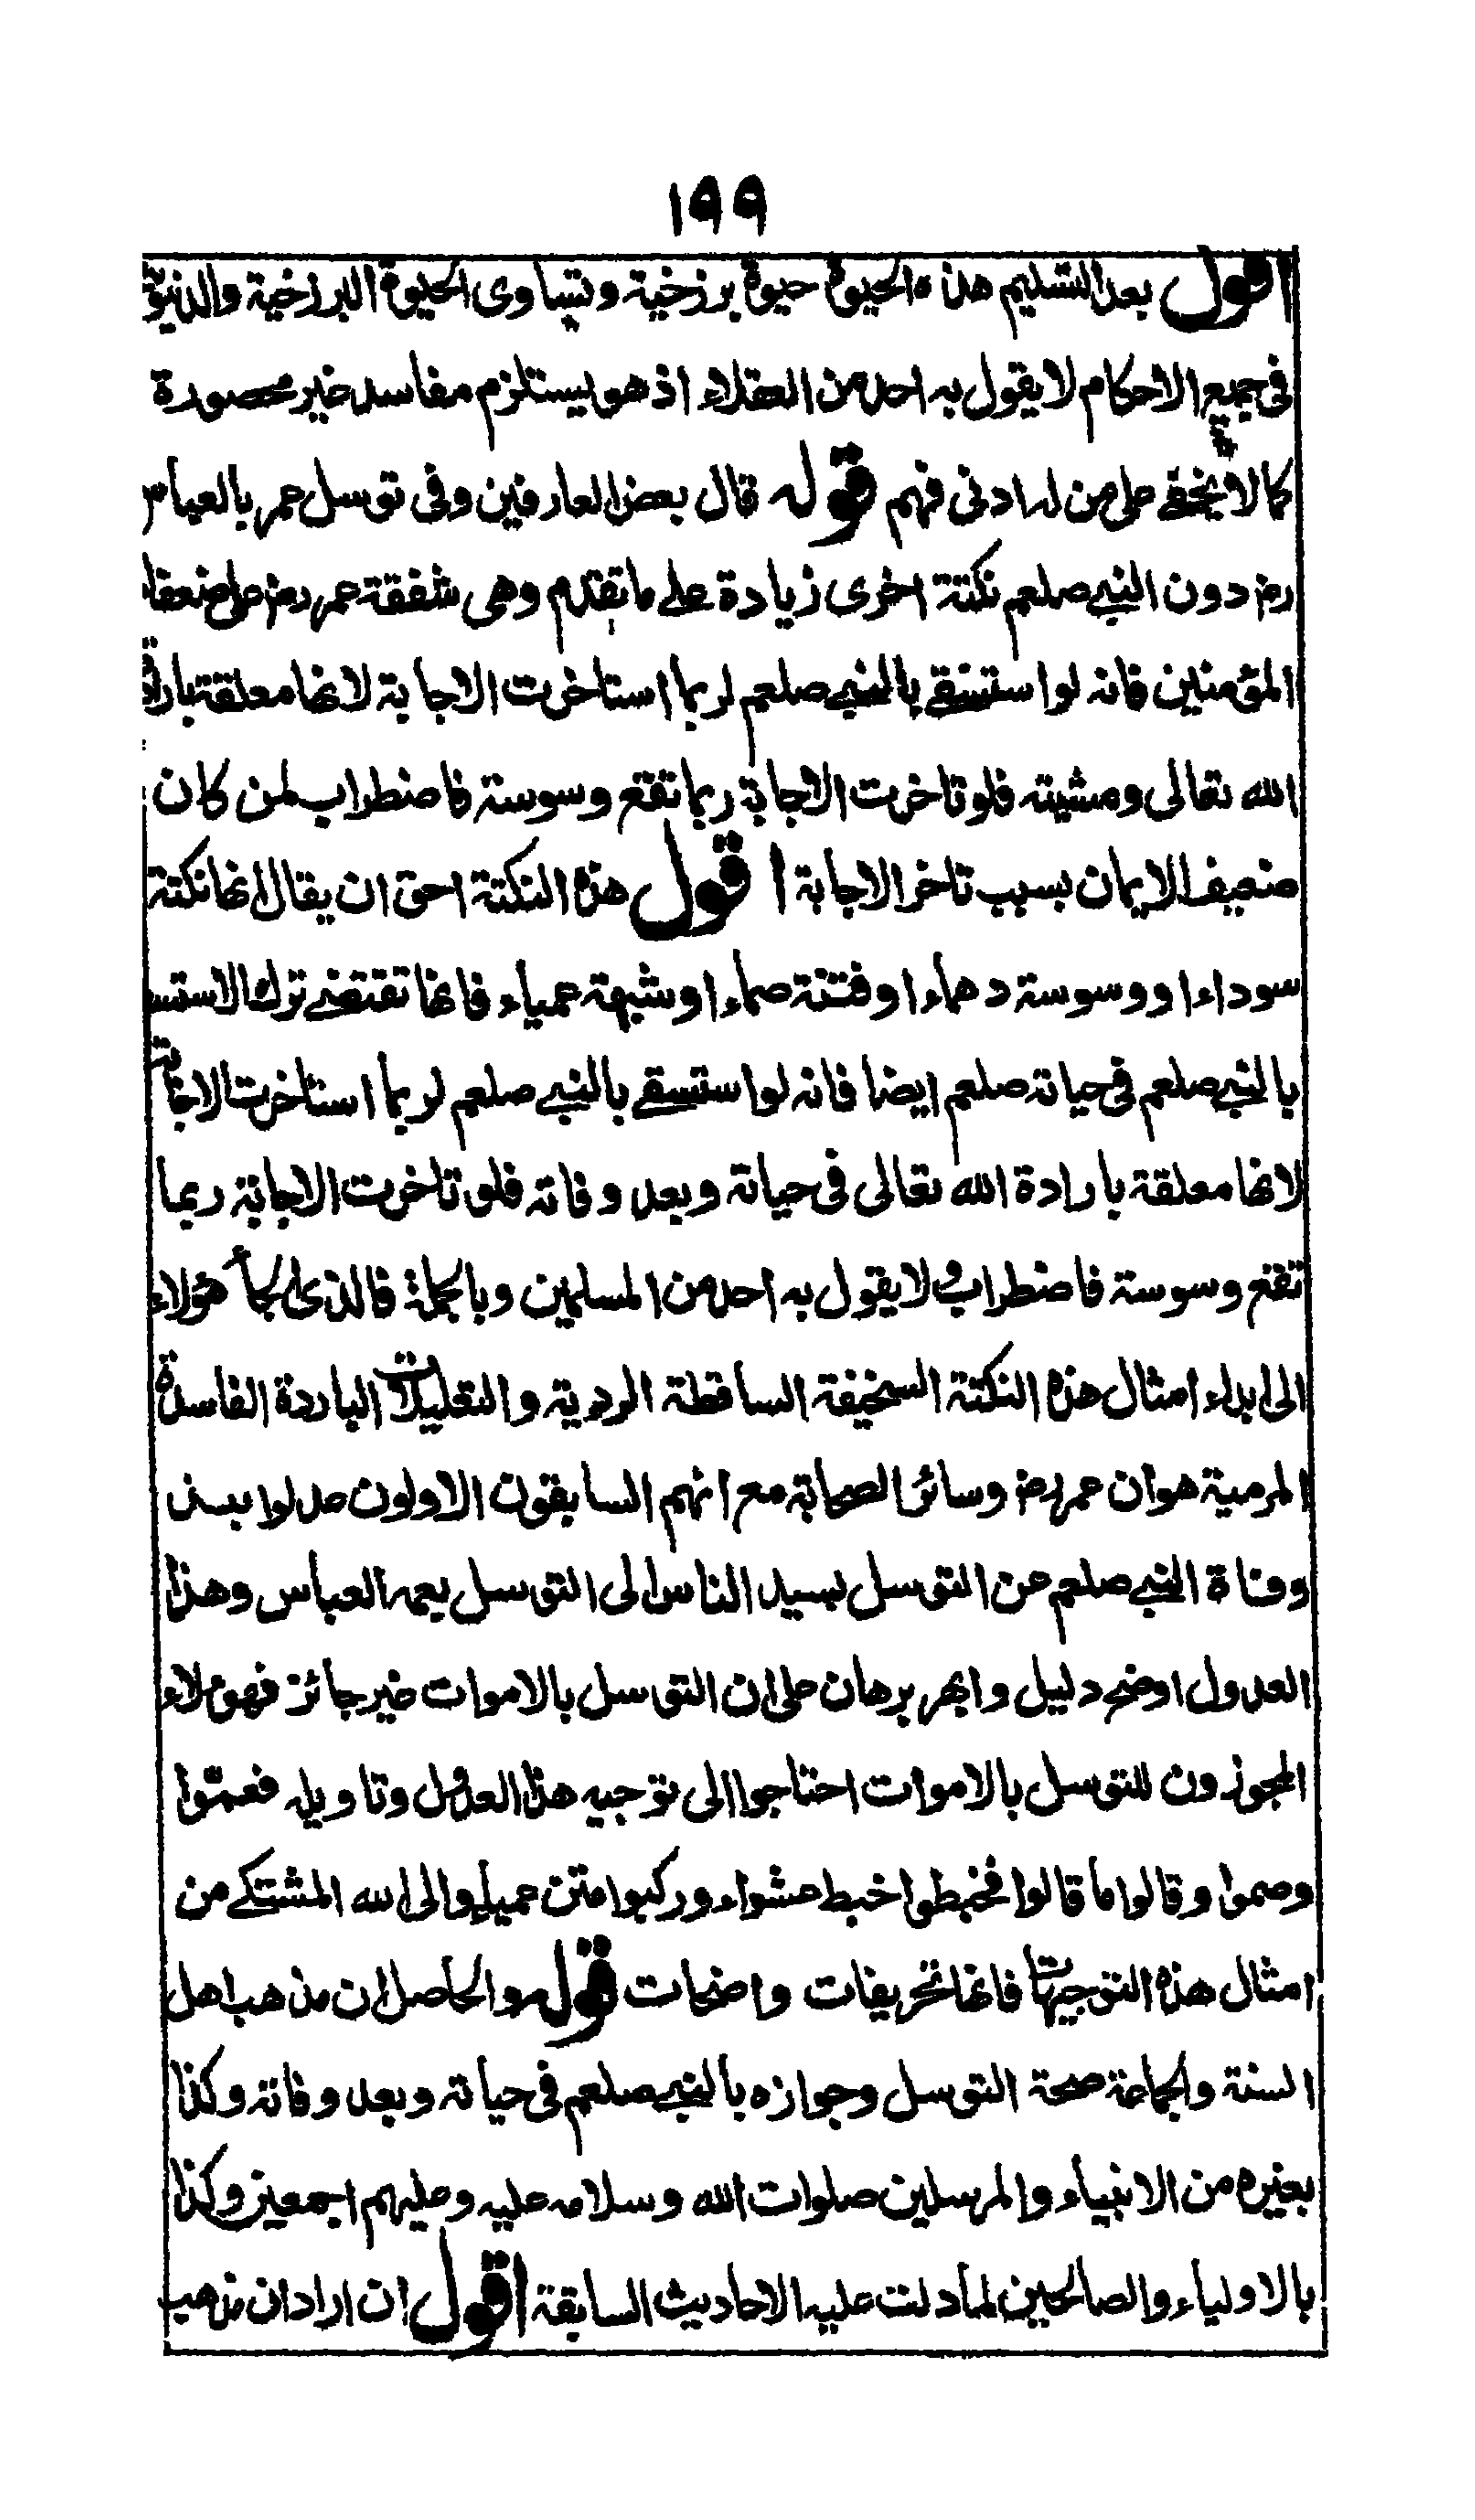 ١٩٩
اقول بعد التسليم هذه الحيوة حيوة برزخية وتساوى الحيوة البرزخية والدنيوية
فى جميع الاحكام لا يقول به احد من العقلاء اذ هو يستلزم مفاسد غير محصورة
كما لا يخفى على من له ادنى فهم قوله قال بعض العارفين وفى توسل عمر بالعباس
رض دون النبى صلعم نكتة اخرى زيادة على ما تقدم وهى شفقة عمر رض على ضعفاء
المؤمنين فانه لو استسقى بالنبى صلعم لربما استاخرت الاجابة لانها معلقة بارادة
الله تعالى ومشيته فلو تاخرت الاجابة ربما تقع وسوسة فاضطراب لمن كان
ضعيف الايمان بسبب تاخر الاجابة اقول هذه النكتة احق ان يقال انها نكتة
سوداء او وسوسة دهماء او فتنة صماء او شبهة عمياء فانها تقتضى ترك الاستسقاء
بالنبى صلعم فى حياته صلعم ايضا فانه لو استسقى بالنبى صلعم لربما استاخرت الاجابة
لانها معلقة بارادة الله تعالى فى حياته وبعد وفاته فلو تاخرت الاجابة ربما
تقع وسوسة فاضطراب ولا يقول به احد من المسلمين وبالجملة فالذى الجأ هؤلاء
الى ابداء امثال هذه النكتة السخيفة الساقطة الردية والتعليلات الباردة الفاسدة
المرمية هو ان عمر رض وسائر الصحابة مع انهم السابقون الاولون عدلوا بعد
وفاة النبى صلعم عن التوسل بسيد الناس الى التوسل بعمه العباس وهذا
العدول اوضح دليل وابهر برهان على ان التوسل بالاموات غير جائز فهؤلاء
المجوزون للتوسل بالاموات احتاجوا الى توجيه هذا العدول وتاويله فعموا
وصموا وقالوا ما قالوا فخبطوا خبط عشواء وركبوا متن عمياء والى الله المشتكى من
امثال هذه التوجيهات فانها تحريفات واضحات قوله والحاصل ان مذهب اهل
السنة والجماعة صحة التوسل وجوازه بالنبى صلعم فى حياته وبعد وفاته وكذا
بغيره من الانبياء والمرسلين صلوات الله وسلامه عليه وعليهم اجمعين وكذا
بالاولياء والصالحين لما دلت عليه الاحاديث السابقة اقول ان اراد ان مذهب